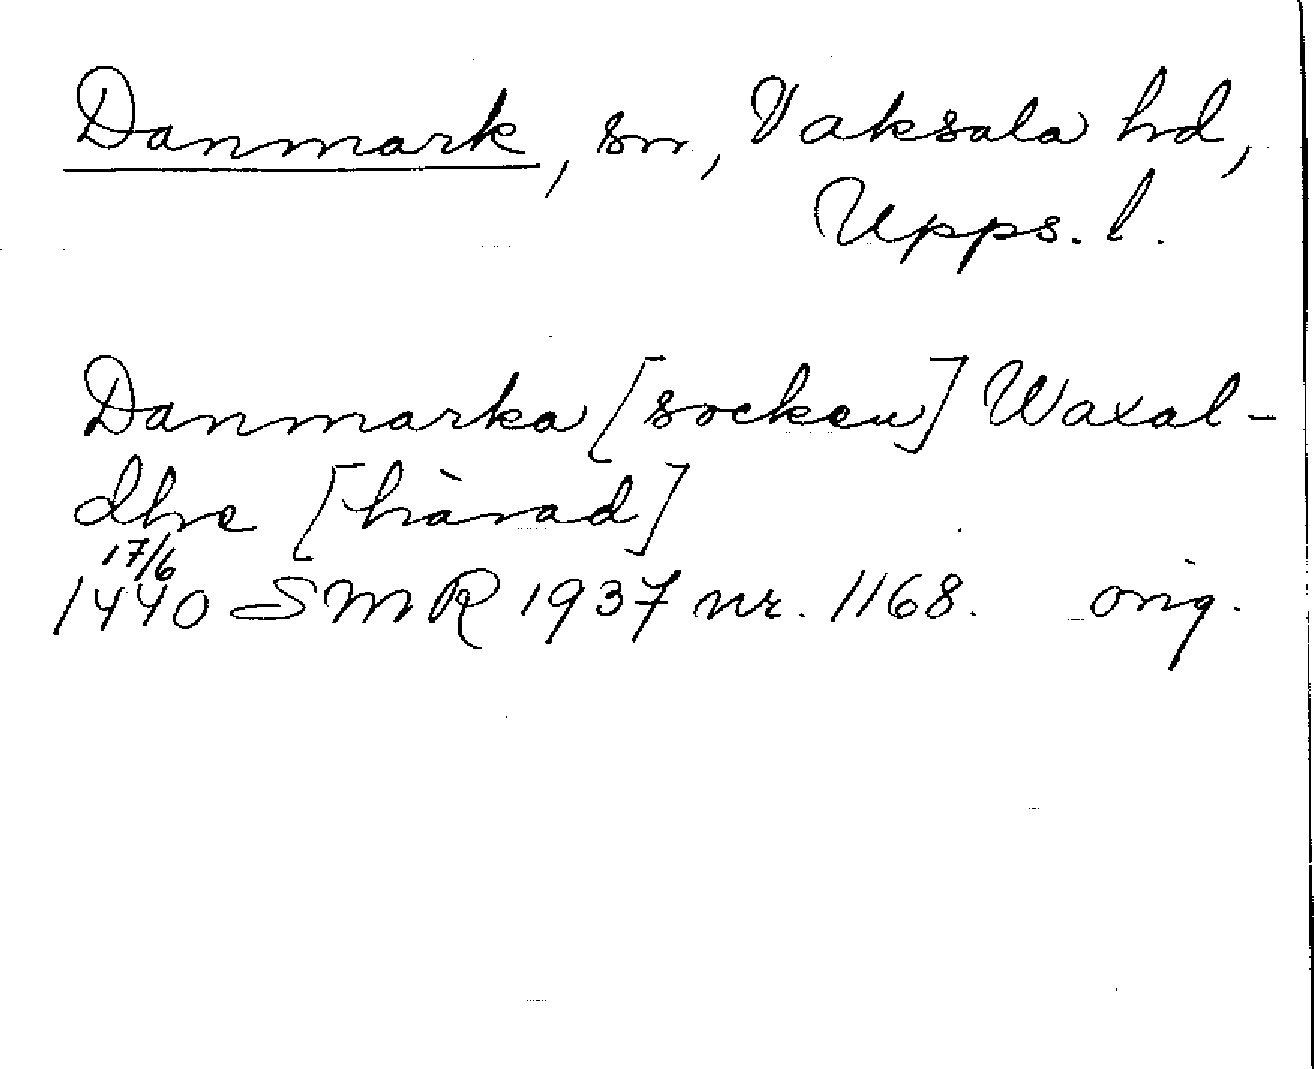 Danmark, sn, Vaksala hd,
Upps. l.
Danmarka [socken] Waxal-
dhre [härad]
17/6
1440 SMR 1937 nr. 1168. orig.